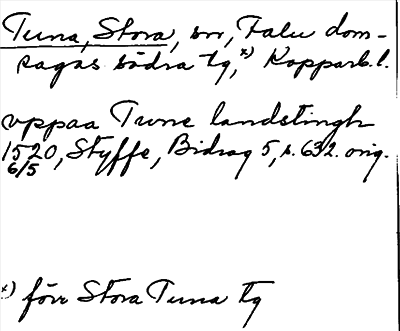 Tuna, Stora, sn, Falu dom-
sagas södra tg, x) Kopparb.l.
vppaa Twne landstingh
1520, Styffe, Bidrag 5, s. 632. orig.
6/5
x) förr Stora Tuna tg